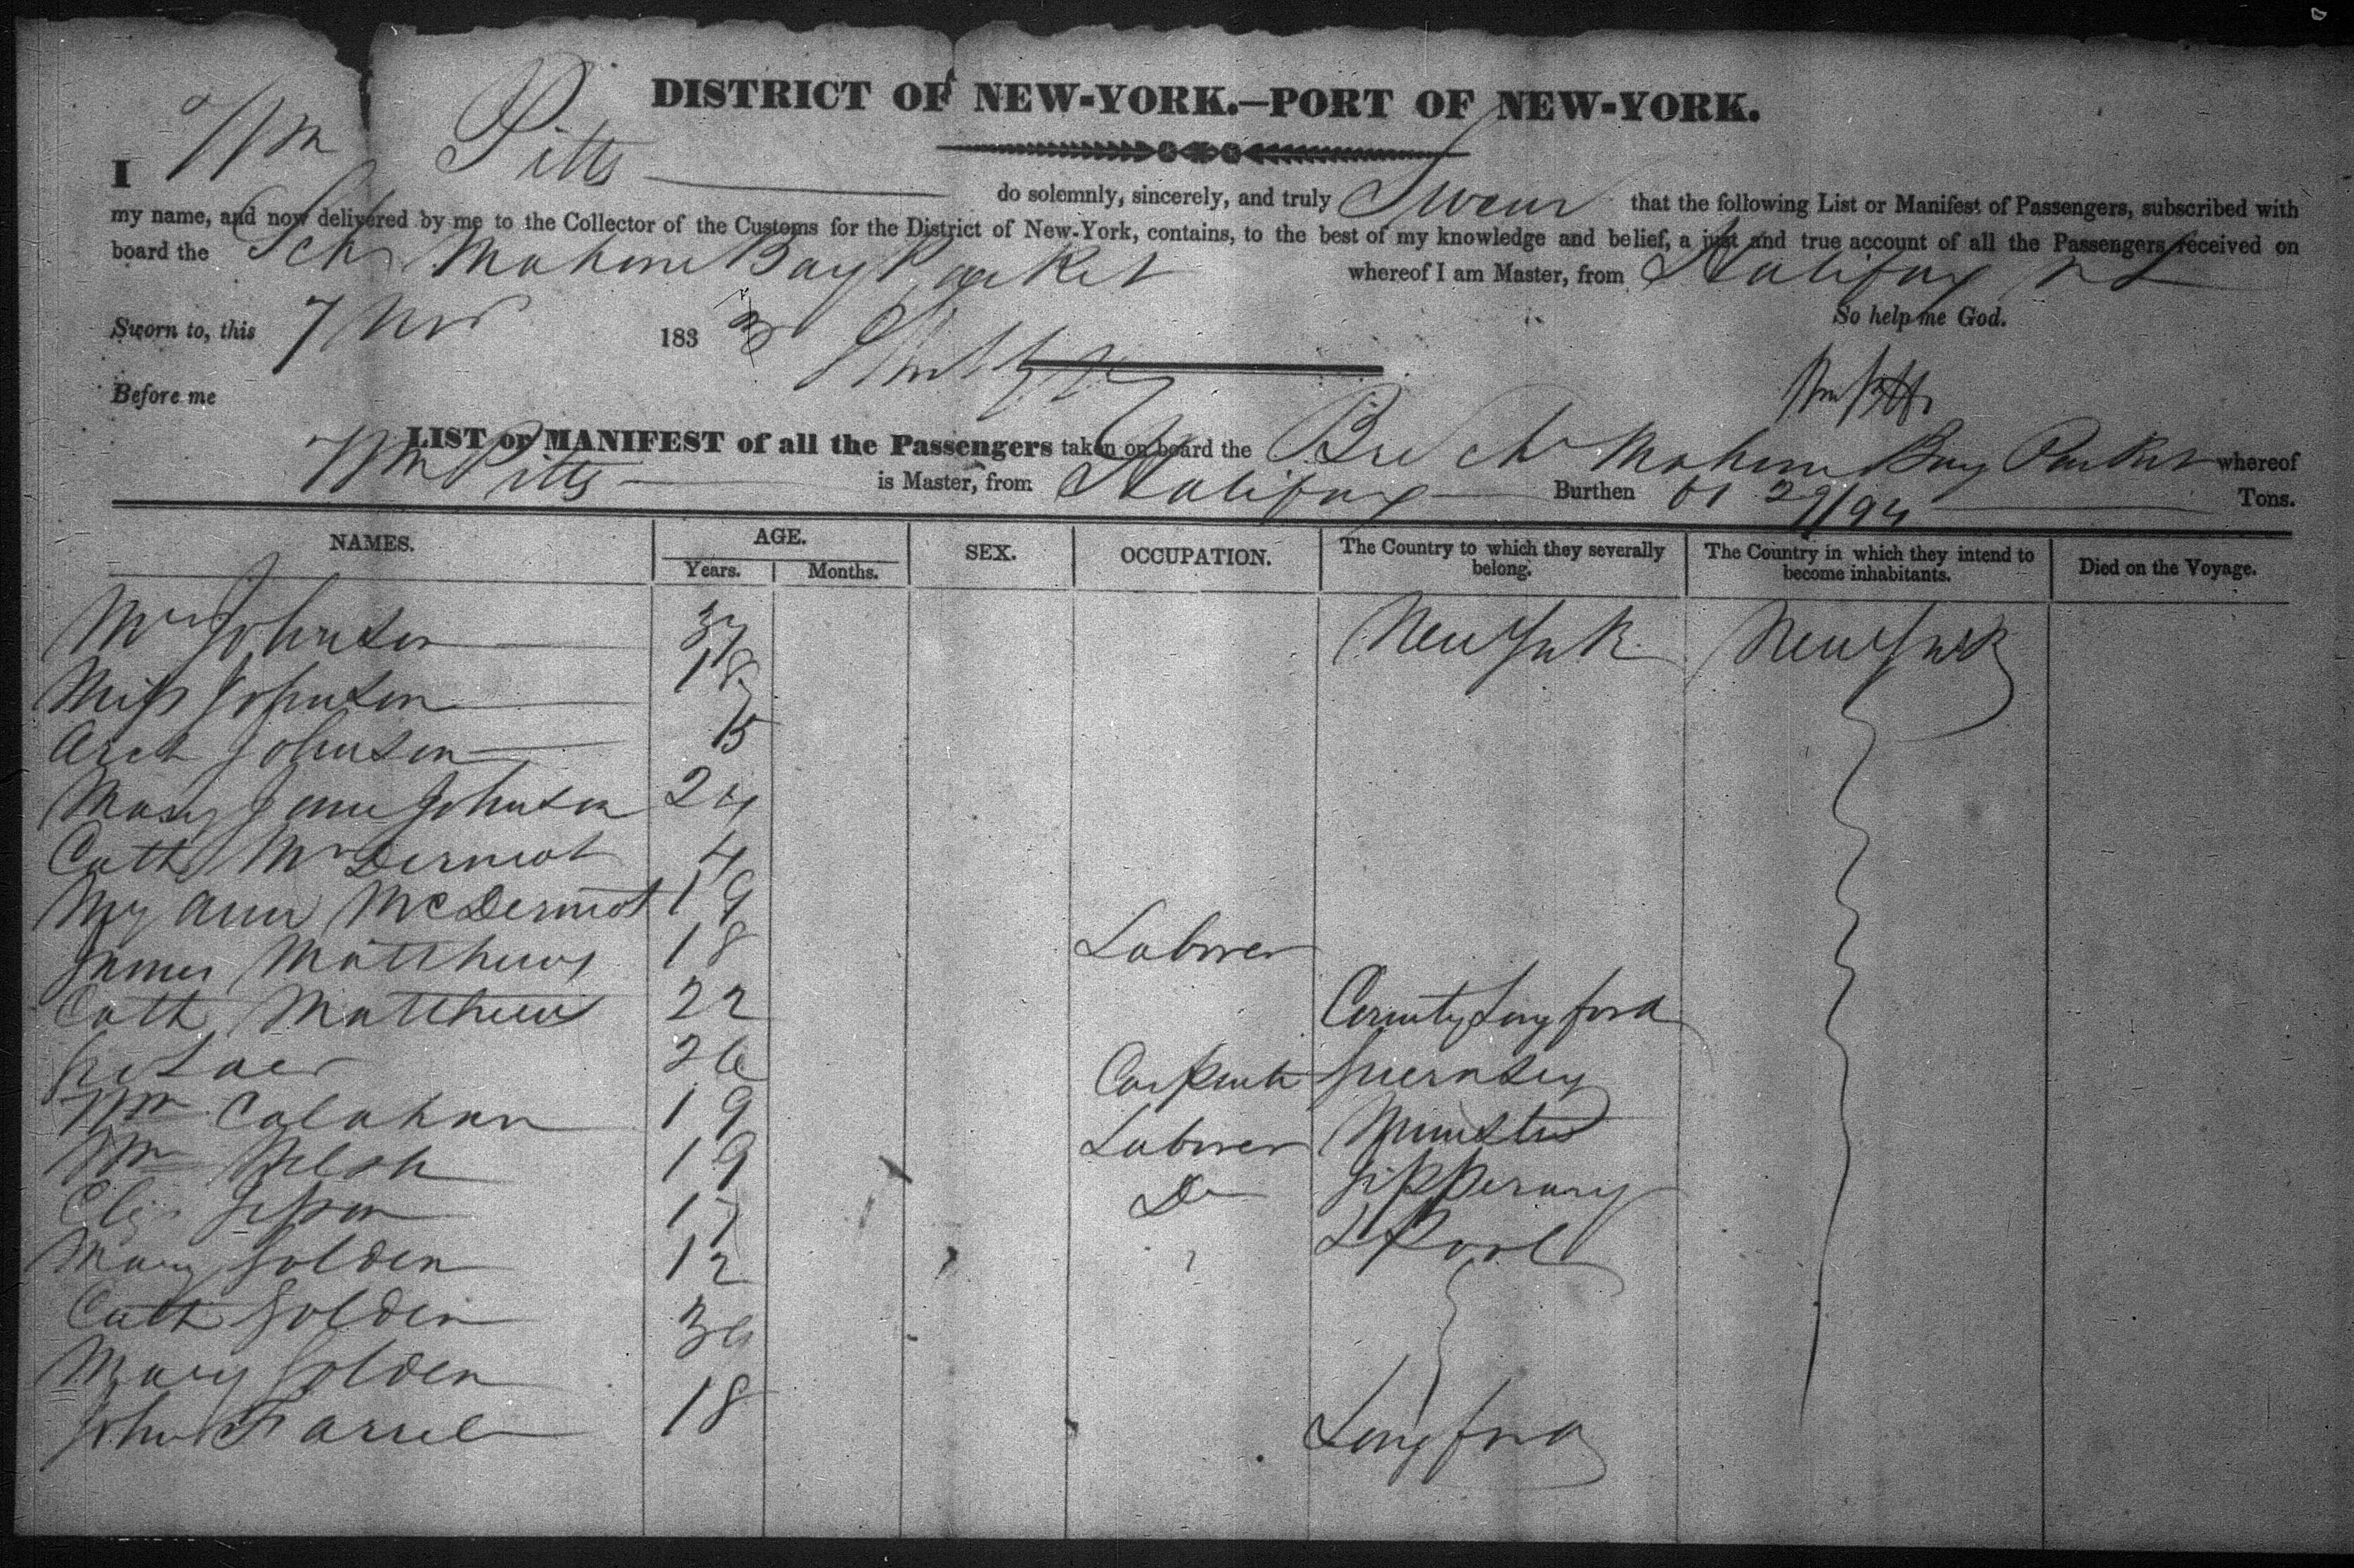 DISTRICT OF NEW-YORK.—PORT OF NEW-YORK.
I Wm Pitts do solemnly, sincerely, and truly Swear that the following List or Manifest of Passengers, subscribed with
my name, and now delivered by me to the Collector of the Customs for the District of New-York, contains, to the best of my knowledge and belief, a just and true account of all the Passengers received on
board the Schr Mahone Bay Packet whereof I am Master, from Halifax NS
So help me God.
Sworn to, this 7 Nov 183
Wm Pitts
Before me
LIST or MANIFEST of all the Passengers taken on board the Br Schr Mahone Bay Packet whereof
Wm Pitts is Master, from Halifax Burthen 61 29/94 Tons.
NAMES. AGE. SEX. OCCUPATION. The Country to which they severally belong. The Country in which they intend to become inhabitants. Died on the Voyage.
Years. Months.
Mrs Johnson 37 New York New York
Miss Johnson 18
Arch Johnson 15
Mary Jane Johnson 24
Cath McDermot 4
My Ann McDermot 19
James Matthews 18 Laborer
Cath Matthews 22 County Longford
26 Carpenter Guernsey
Wm Calahan 19 Laborer Munster
Wm Welsh 19 Do Tipperary
Eliz 17 L Pool
Mary Golden 12
Cath Golden
Mary Golden
John Farrel 18 Longford